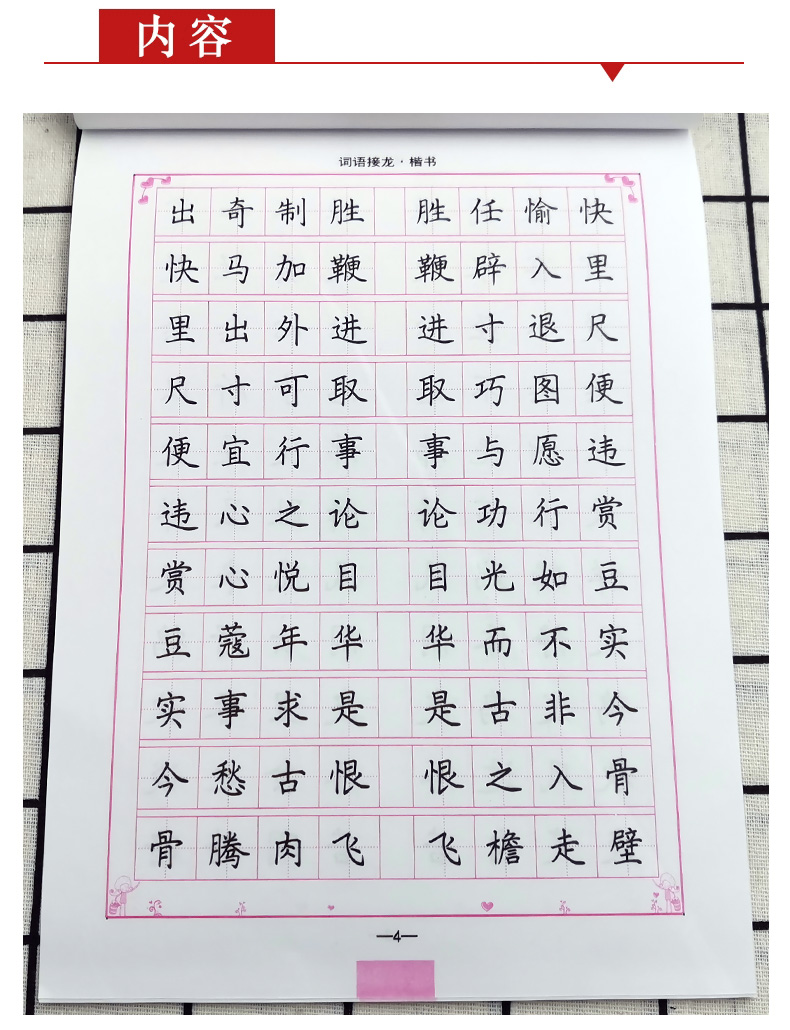 内容
词语接龙·楷书
出奇制胜 胜任愉快
快马加鞭 鞭辟入里
里出外进 进寸退尺
尺寸可取 取巧图便
便宜行事 事与愿违
违心之论 论功行赏
赏心悦目 目光如豆
豆蔻年华 华而不实
实事求是 是古非今
今愁古恨 恨之入骨
骨腾肉飞 飞檐走壁
—4—